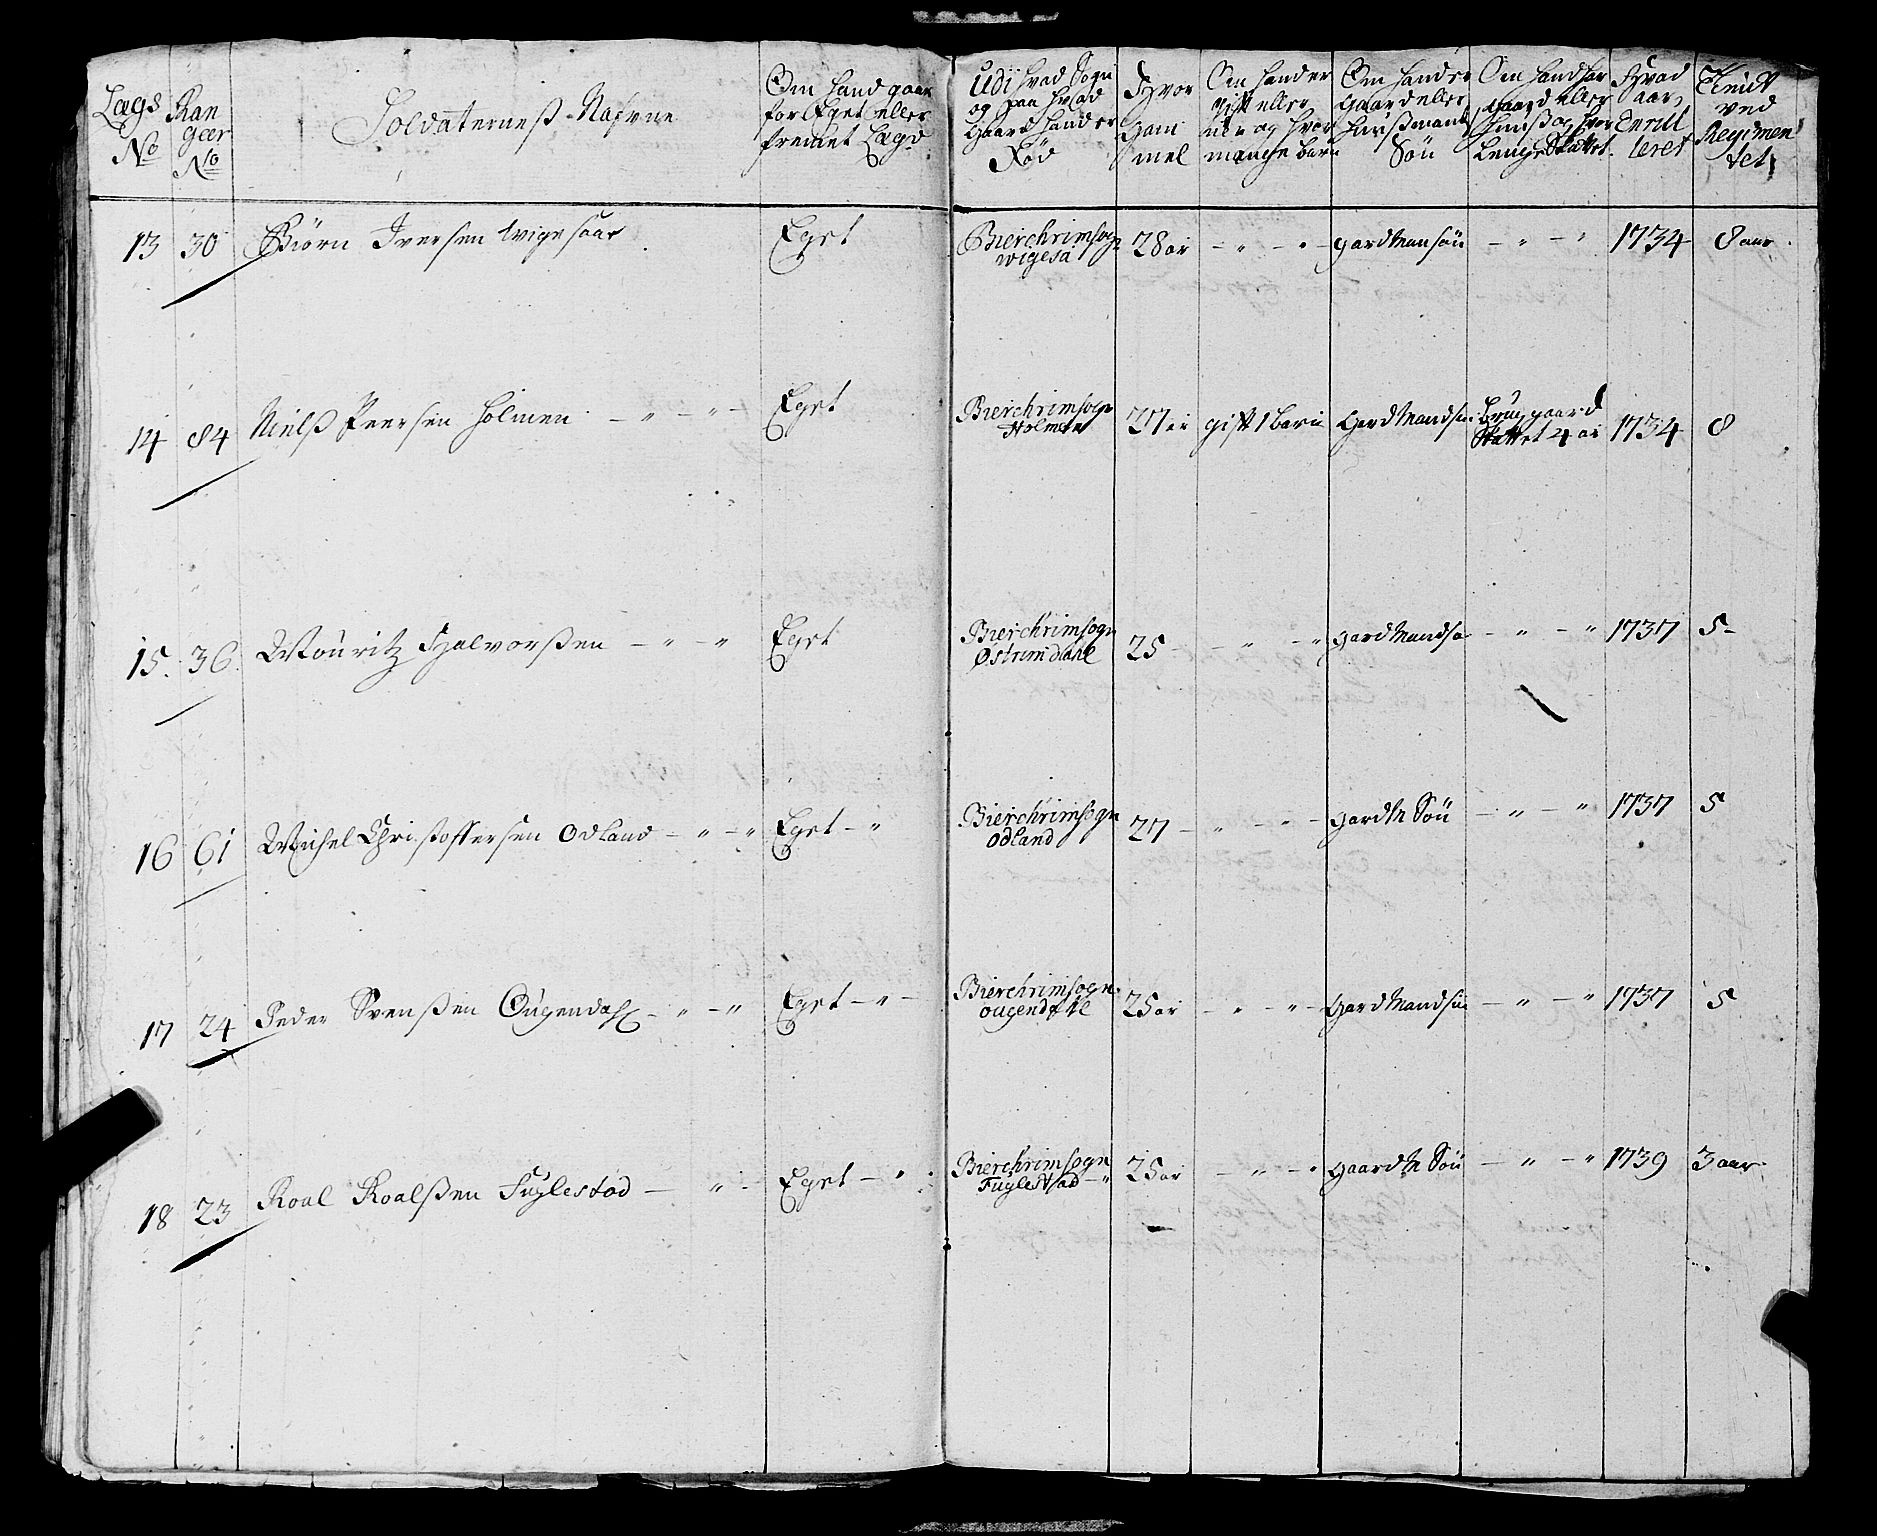 Lags No
Ran geer No
Soldaternes Nafvne
Om hand gaar for Eget eller fremet Lægd
Udi hvad Sogn og paa hvad Gaard hand er Fød
Hvor Gam mel
Om hand er gift eller ei og hvor mange barn
Om hand er Gaard eller Huusmands Søn
Om hand har gaard eller huuß og hvor Lenge Skattet
Hvad aar Enrul leret
Tient ved Regimen tet
13 30 Biørn Iversen wigesaae Eget Bierchrimsogn wigesa 28 ar - " - " - gardMansøn - " - " 1734 8 aar
14 84 Nielß Peersen Holmen - " - " - Eget Bierchrimsogn Holmen 27 ar gift 1 barn GardMandsøn Brug gaard Skattet 4 ar 1734 8
15 36 Mouritz Halvorßen - " - " Eget Bierchrimsogn Østrimdahl 25 - " - " gardMandsø - " - " 1737 5 -
16 61 Michel Christoffersen Odland - " - " Eget - " Bierchrimsogn Odland 27 - " - - gardM Søn - " - " 1737 5
17 24 Peder Svenßen Ougendahl - " - " Eget - " - Bierchrimsogn ougendahl 25 ar - " - " - GardMandsøn - " - " 1737 5
18 23 Roal Roalßen Fuglestad - " - Eget - " Bierchrimsogn Fuglestad - " 25 ar - " - " gaardM Søn - " - " 1739 3 aar